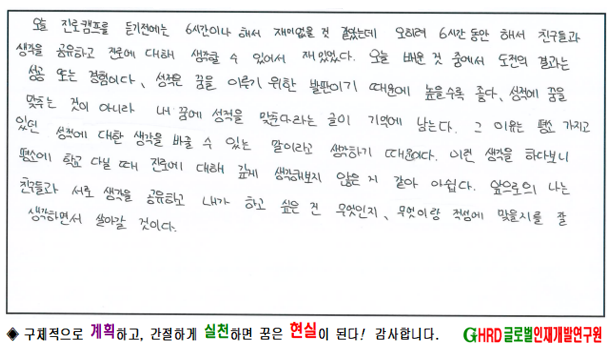 오늘 진로캠프를 듣기전에는 6시간이나 해서 재미없을 것 같았는데 오히려 6시간 동안 해서 친구들과
생각을 공유하고 진로에 대해 생각할 수 있어서 재밌었다. 오늘 배운 것 중에서 도전의 결과는
성공 또는 경험이다, 성적은 꿈을 이루기 위한 발판이기 때문에 높을수록 좋다, 성적에 꿈을
맞추는 것이 아니라 내 꿈에 성적을 맞춘다라는 글이 기억에 남는다. 그 이유는 평소 가지고
있던 성적에 대한 생각을 바꿀 수 있는 말이라고 생각하기 때문이다. 이런 생각을 하다보니
평소에 학교 다닐 때 진로에 대해 깊게 생각해보지 않은 거 같아 아쉽다. 앞으로의 나는
친구들과 서로 생각을 공유하고 내가 하고 싶은 건 무엇인지, 무엇이랑 적성에 맞을지를 잘
생각하면서 살아갈 것이다.
◈ 구체적으로 계획하고, 간절하게 실천하면 꿈은 현실이 된다! 감사합니다. GHRD 글로벌인재개발연구원